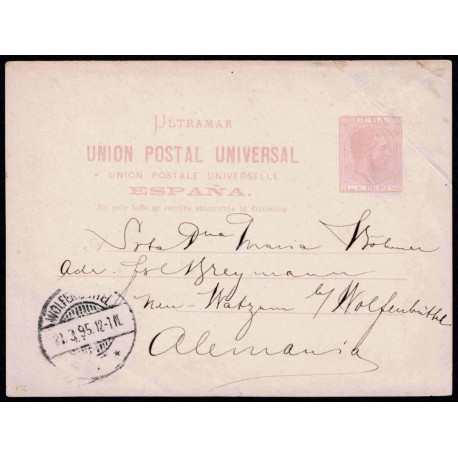 ULTRAMAR
CUBA
UNION POSTAL UNIVERSAL
UNION POSTALE UNIVERSELLE
ESPAÑA.
En este lado se escribe solamente la direccion
Srta Dna Maria Böhmer
Adr. Frl Breymann
Neu-Watzum b/ Wolfenbüttel
Alemania
WOLFENBÜTTEL
21.3.95.12-1N.